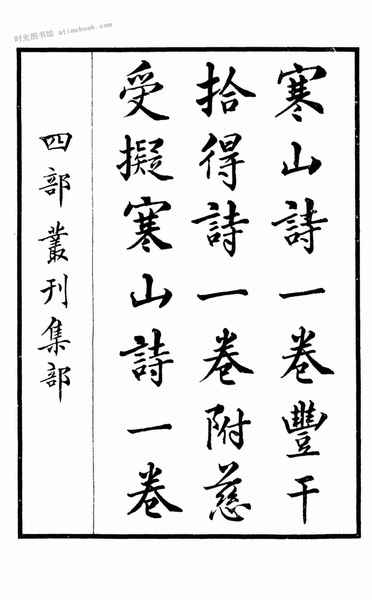 时光图书馆 atimebook.com
寒山詩一卷豐干
拾得詩一卷附慈
受擬寒山詩一卷
四部叢刊集部